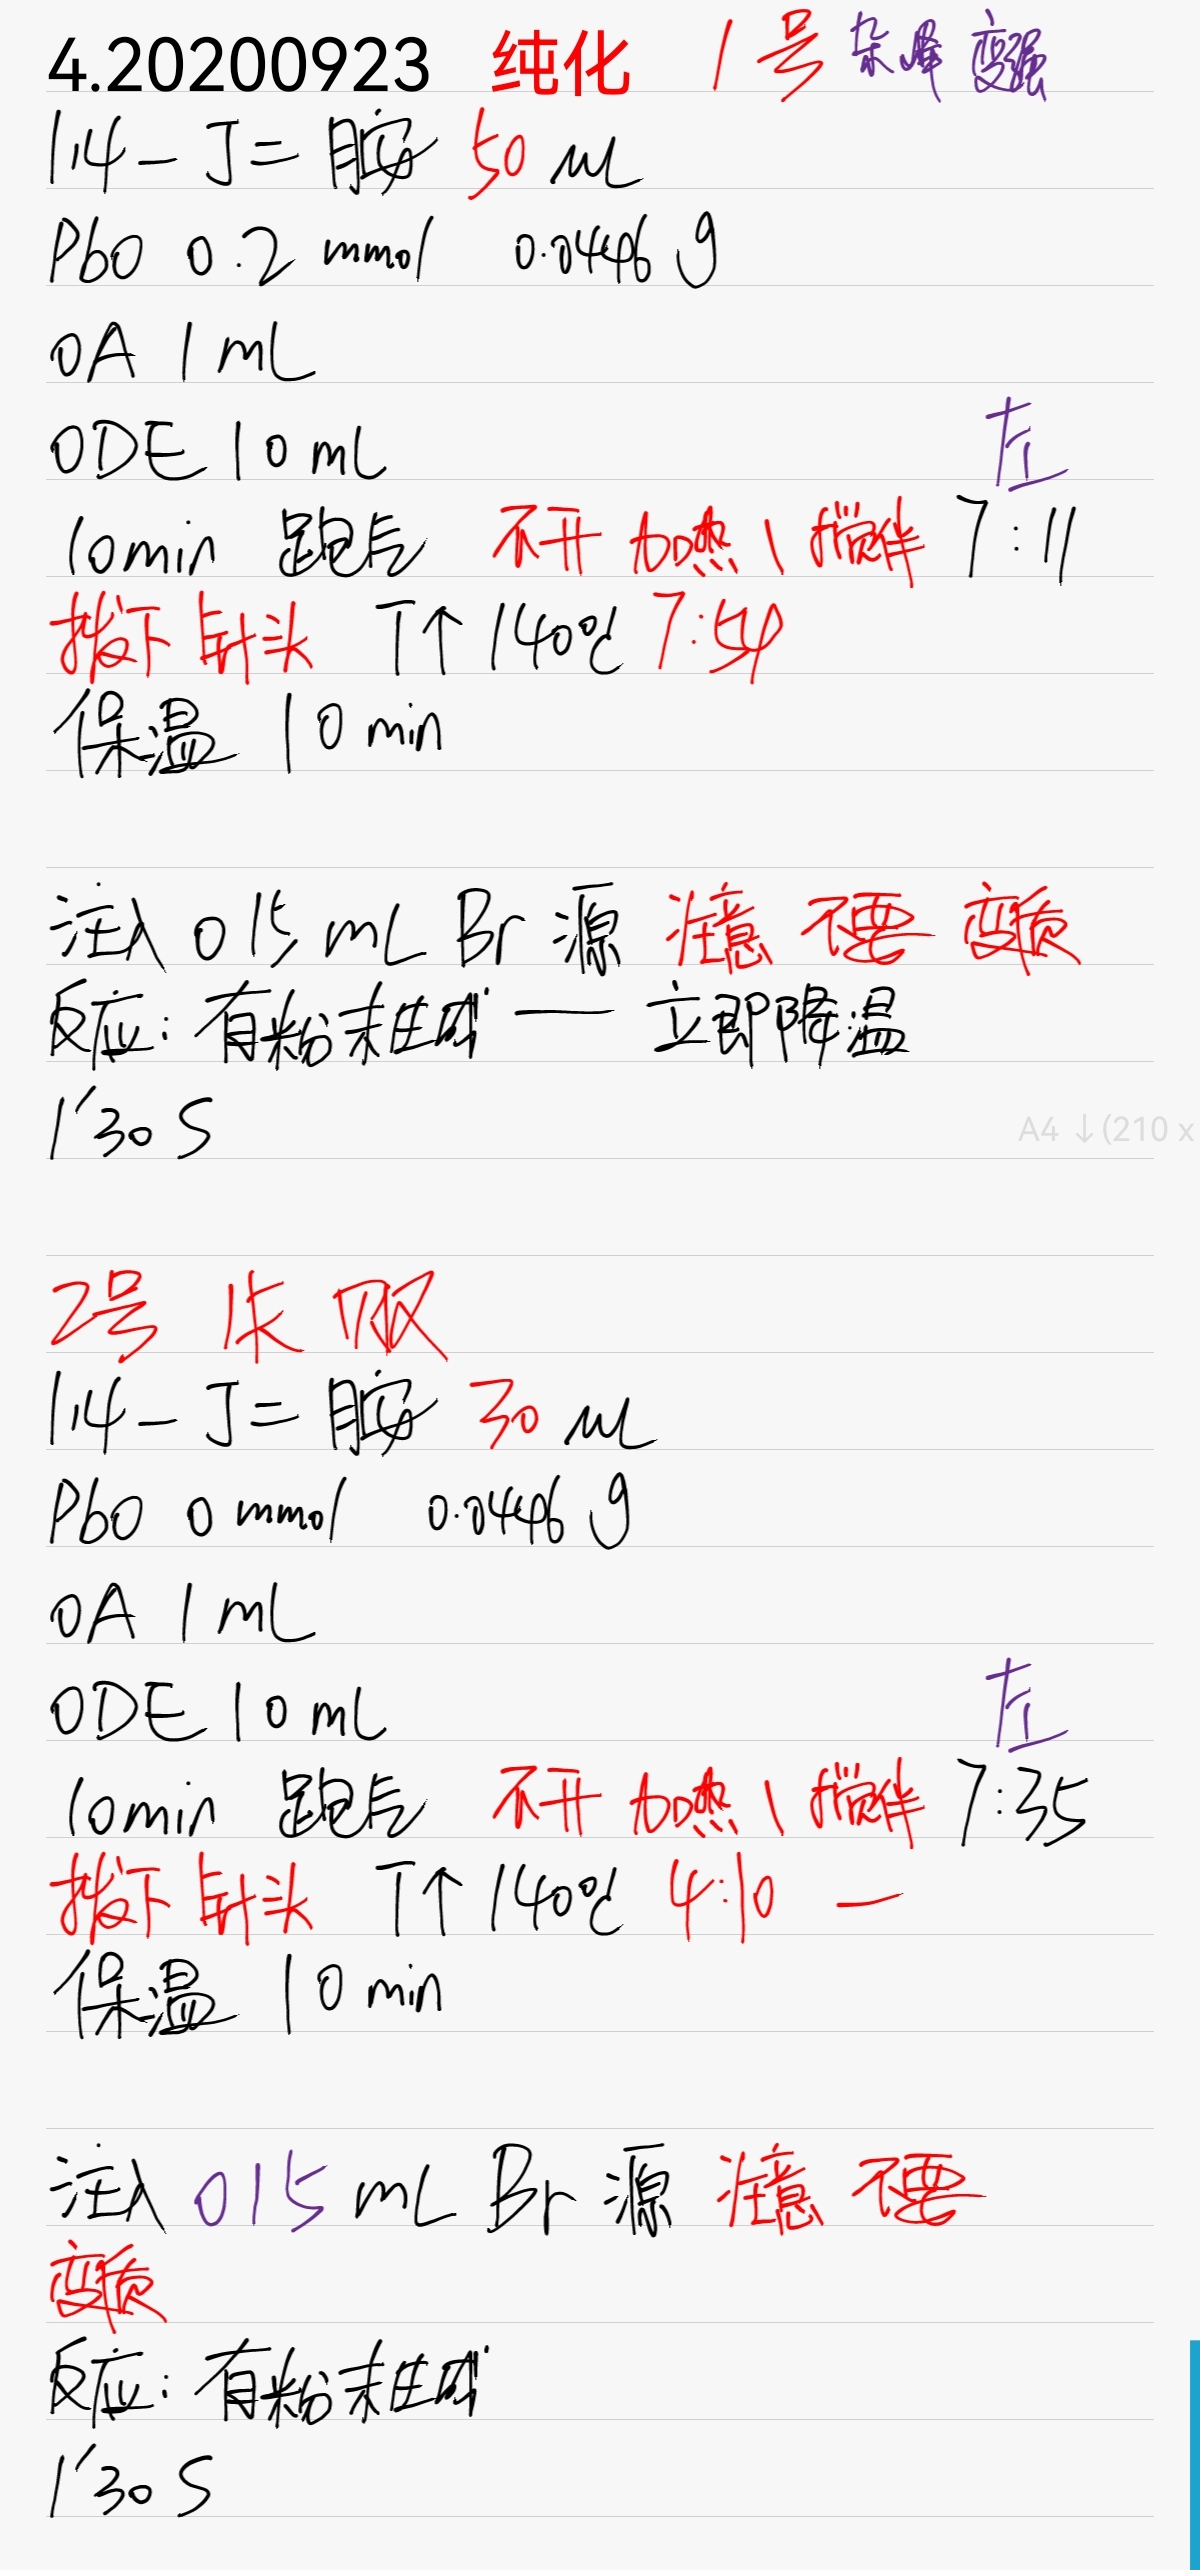 4.20200923 纯化 1号 杂峰 变强
1,4-丁二胺 50 μL
PbO 0.2 mmol 0.0446 g
OA 1 mL
ODE 10 mL 左
10min 跑气 不开 加热、搅拌 7:11
拔下针头 T↑ 140℃ 7:54
保温 10 min
注入 0.15 mL Br 源 注意 不要 变质
反应: 有粉末生成 — 立即降温
1'30 S
A4 ↓(210 x
2号 失败
1,4-丁二胺 30 μL
PbO 0 mmol 0.0446 g
OA 1 mL
ODE 10 mL 左
10min 跑气 不开 加热、搅拌 7:35
拔下针头 T↑ 140℃ 4:10 —
保温 10 min
注入 0.15 mL Br 源 注意 不要
变质
反应: 有粉末生成
1'30 S